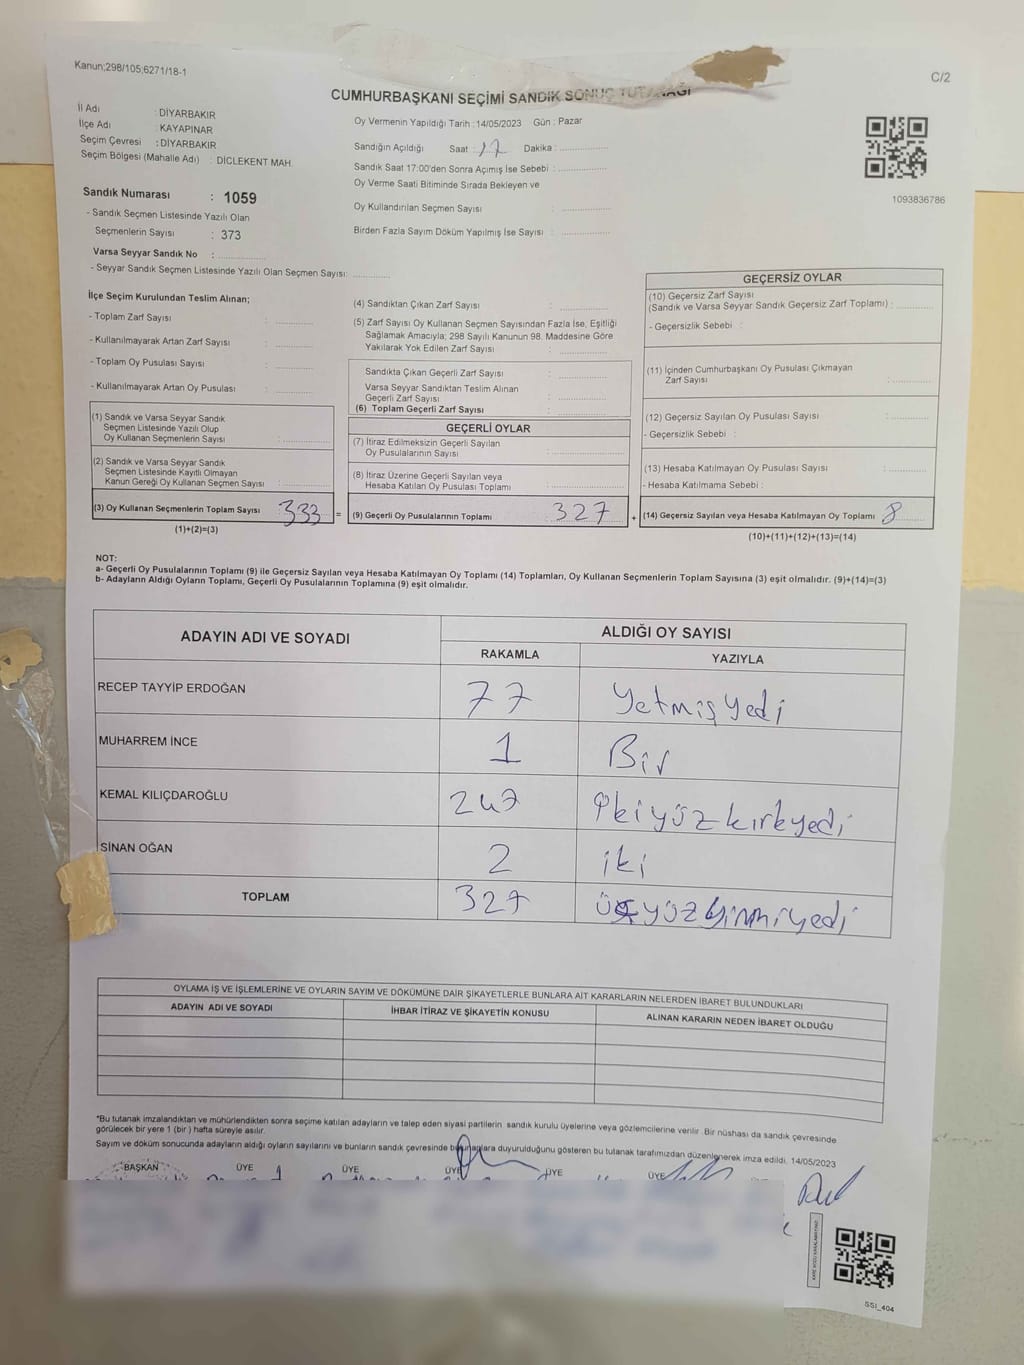 Kanun;298/105;6271/18-1
C/2
CUMHURBAŞKANI SEÇİMİ SANDIK SONUÇ TUTANAĞI
İl Adı : DİYARBAKIR
İlçe Adı : KAYAPINAR
Seçim Çevresi : DİYARBAKIR
Seçim Bölgesi (Mahalle Adı) : DİCLEKENT MAH.
Oy Vermenin Yapıldığı Tarih : 14/05/2023 Gün : Pazar
Sandığın Açıldığı Saat : 17 Dakika : ..............
Sandık Saat 17:00'den Sonra Açımış İse Sebebi : ..............
Oy Verme Saati Bitiminde Sırada Bekleyen ve
Oy Kullandırılan Seçmen Sayısı : ..............
Birden Fazla Sayım Döküm Yapılmış İse Sayısı : ..............
1093836786
Sandık Numarası : 1059
- Sandık Seçmen Listesinde Yazılı Olan
Seçmenlerin Sayısı : 373
Varsa Seyyar Sandık No : ..............
- Seyyar Sandık Seçmen Listesinde Yazılı Olan Seçmen Sayısı: ..............
İlçe Seçim Kurulundan Teslim Alınan;
- Toplam Zarf Sayısı : ..............
- Kullanılmayarak Artan Zarf Sayısı : ..............
- Toplam Oy Pusulası Sayısı : ..............
- Kullanılmayarak Artan Oy Pusulası : ..............
(1) Sandık ve Varsa Seyyar Sandık
Seçmen Listesinde Yazılı Olup
Oy Kullanan Seçmenlerin Sayısı : ..............
(2) Sandık ve Varsa Seyyar Sandık
Seçmen Listesinde Kayıtlı Olmayan
Kanun Gereği Oy Kullanan Seçmen Sayısı : ..............
(3) Oy Kullanan Seçmenlerin Toplam Sayısı 333
(1)+(2)=(3)
=
(4) Sandıktan Çıkan Zarf Sayısı : ..............
(5) Zarf Sayısı Oy Kullanan Seçmen Sayısından Fazla İse, Eşitliği
Sağlamak Amacıyla; 298 Sayılı Kanunun 98. Maddesine Göre
Yakılarak Yok Edilen Zarf Sayısı : ..............
Sandıkta Çıkan Geçerli Zarf Sayısı : ..............
Varsa Seyyar Sandıktan Teslim Alınan
Geçerli Zarf Sayısı : ..............
(6) Toplam Geçerli Zarf Sayısı : ..............
GEÇERLİ OYLAR
(7) İtiraz Edilmeksizin Geçerli Sayılan
Oy Pusulalarının Sayısı : ..............
(8) İtiraz Üzerine Geçerli Sayılan veya
Hesaba Katılan Oy Pusulası Toplamı : ..............
(9) Geçerli Oy Pusulalarının Toplamı 327
+
GEÇERSİZ OYLAR
(10) Geçersiz Zarf Sayısı
(Sandık ve Varsa Seyyar Sandık Geçersiz Zarf Toplamı) : ..............
- Geçersizlik Sebebi :
(11) İçinden Cumhurbaşkanı Oy Pusulası Çıkmayan
Zarf Sayısı : ..............
(12) Geçersiz Sayılan Oy Pusulası Sayısı : ..............
- Geçersizlik Sebebi :
(13) Hesaba Katılmayan Oy Pusulası Sayısı : ..............
- Hesaba Katılmama Sebebi :
(14) Geçersiz Sayılan veya Hesaba Katılmayan Oy Toplamı 8
(10)+(11)+(12)+(13)=(14)
NOT:
a- Geçerli Oy Pusulalarının Toplamı (9) ile Geçersiz Sayılan veya Hesaba Katılmayan Oy Toplamı (14) Toplamları, Oy Kullanan Seçmenlerin Toplam Sayısına (3) eşit olmalıdır. (9)+(14)=(3)
b- Adayların Aldığı Oyların Toplamı, Geçerli Oy Pusulalarının Toplamına (9) eşit olmalıdır.
ADAYIN ADI VE SOYADI
ALDIĞI OY SAYISI
RAKAMLA YAZIYLA
RECEP TAYYİP ERDOĞAN 77 Yetmiş yedi
MUHARREM İNCE 1 Bir
KEMAL KILIÇDAROĞLU 247 iki yüz kırkyedi
SİNAN OĞAN 2 iki
TOPLAM 327 üçyüz yirmiyedi
OYLAMA İŞ VE İŞLEMLERİNE VE OYLARIN SAYIM VE DÖKÜMÜNE DAİR ŞİKAYETLERLE BUNLARA AİT KARARLARIN NELERDEN İBARET BULUNDUKLARI
ADAYIN ADI VE SOYADI İHBAR İTİRAZ VE ŞİKAYETİN KONUSU ALINAN KARARIN NEDEN İBARET OLDUĞU
*Bu tutanak imzalandıktan ve mühürlendikten sonra seçime katılan adayların ve talep eden siyasi partilerin sandık kurulu üyelerine veya gözlemcilerine verilir. Bir nüshası da sandık çevresinde
görülecek bir yere 1 (bir) hafta süreyle asılır.
Sayım ve döküm sonucunda adayların aldığı oyların sayılarını ve bunların sandık çevresinde bulunanlara duyurulduğunu gösteren bu tutanak tarafımızdan düzenlenerek imza edildi. 14/05/2023
BAŞKAN ÜYE ÜYE ÜYE ÜYE ÜYE
SSI_404